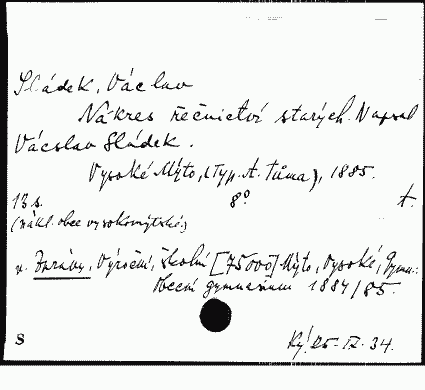 Sládek, Václav
Nákres řečnictví starých. Napsal
Václav Sládek.
Vysoké Mýto, (Typ. A. Tůma), 1885.
13 s. 8° t.
(nákl. obce vysokomýtské)
v. Zprávy, Výroční, školní [75000] Mýto, Vysoké, Gymn.:
Obecní gymnasium 1884/85.
S 25-IX-34.